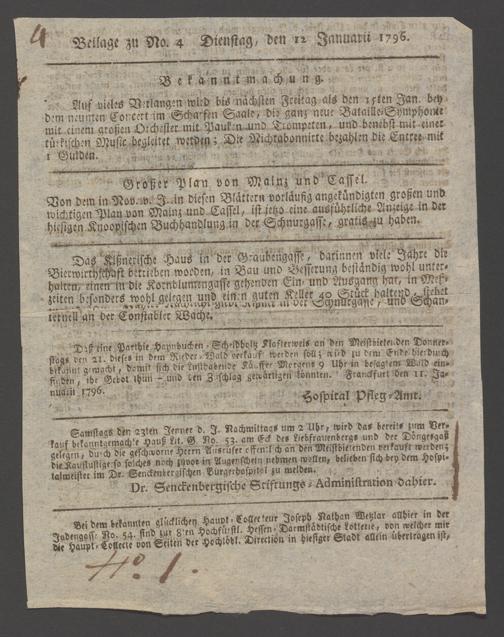 4
Beilage zu No. 4 Dienstag, den 12 Januarii 1796.
Bekanntmachung.
Auf vieles Verlangen wird bis nächsten Freitag als den 15ten Jan. bey
dem neunten Concert im Scharfen Saale, die ganz neue Bataille-Symphonie
mit einem großen Orchester mit Pauken und Trompeten, und benebst mit einer
türkischen Music begleitet werden; Die Nichtabonnirte bezahlen die Entree mit
1 Gulden.
Großer Plan von Mainz und Cassel.
Von dem in Nov. v. J. in diesen Blättern vorläufig angekündigten großen und
wichtigen Plan von Mainz und Cassel, ist jetzo eine ausführliche Anzeige in der
hiesigen Knoopischen Buchhandlung in der Schnurgasse, gratis zu haben.
Das Kißnerische Haus in der Graubengasse, darinnen viele Jahre die
Bierwirthschaft betrieben worden, in Bau und Besserung beständig wohl unter-
halten, einen in die Kornblumengasse gehenden Ein- und Ausgang hat, in Meß-
zeiten besonders wohl gelegen und einen guten Keller 40 Stück haltend, stehet
in der Schnurgasse, und Schan-
ternell an der Constabler Wache.
Daß eine Parthie Haynbuchen-Scheidholz Klafterweis an den Meistbietenden Donner-
stags den 21. dieses in dem Rieder-Wald verkauft werden soll; wird zu dem Ende hierdurch
bekannt gemacht, damit sich die Lusthabende Käuffer Morgens 9 Uhr in besagtem Wald ein-
finden, ihr Gebot thun – und den Zuschlag gewärtigen könnten. Frankfurt den 11. Ja-
nuarii 1796.
Hospital Pfleg-Amt.
Samstags den 23ten Jenner d. J. Nachmittags um 2 Uhr, wird das bereits zum Ver-
kauf bekanntgemachte Hauß Lit. G. No. 53. am Eck des Liebfrauenbergs und der Döngesgaß
gelegen, durch die geschworne Herrn Ausrufer öffentlich an den Meistbietenden verkauft werden;
die Kauflustige so solches noch zuvor in Augenschein nehmen wollen, belieben sich bey dem Hospi-
talmeister im Dr. Senckenbergischen Burgerhospital zu melden.
Dr. Senckenbergische Stiftungs-Administration dahier.
Bei dem bekannten glücklichen Haupt-Collecteur Joseph Nathan Wetzlar allhier in der
Judengass. No. 54. sind zur 8'ten Hochfürstl. Hessen-Darmstädtische Lotterie, von welcher mir
die Haupt-Collecte von Seiten der Hochlöbl. Direction in hiesiger Stadt allein übertragen ist,
No. 1.